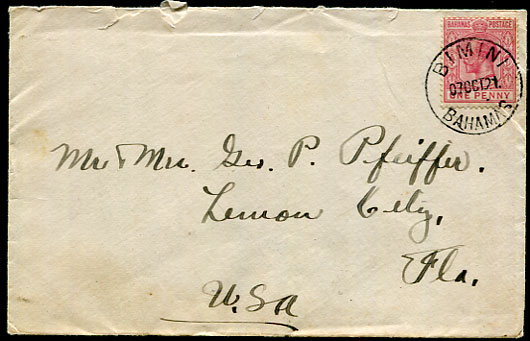 BAHAMAS POSTAGE
ONE PENNY
BIMINI
07OCT21.
BAHAMAS
Mr & Mrs. Geo. P. Pfeiffer.
Lemon City,
Fla.
U.S.A